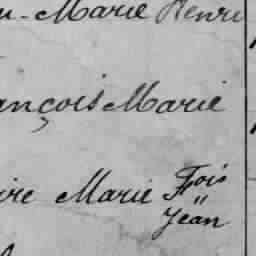 Marie Henri
ançois Marie
ire Marie Fois
"
Jean